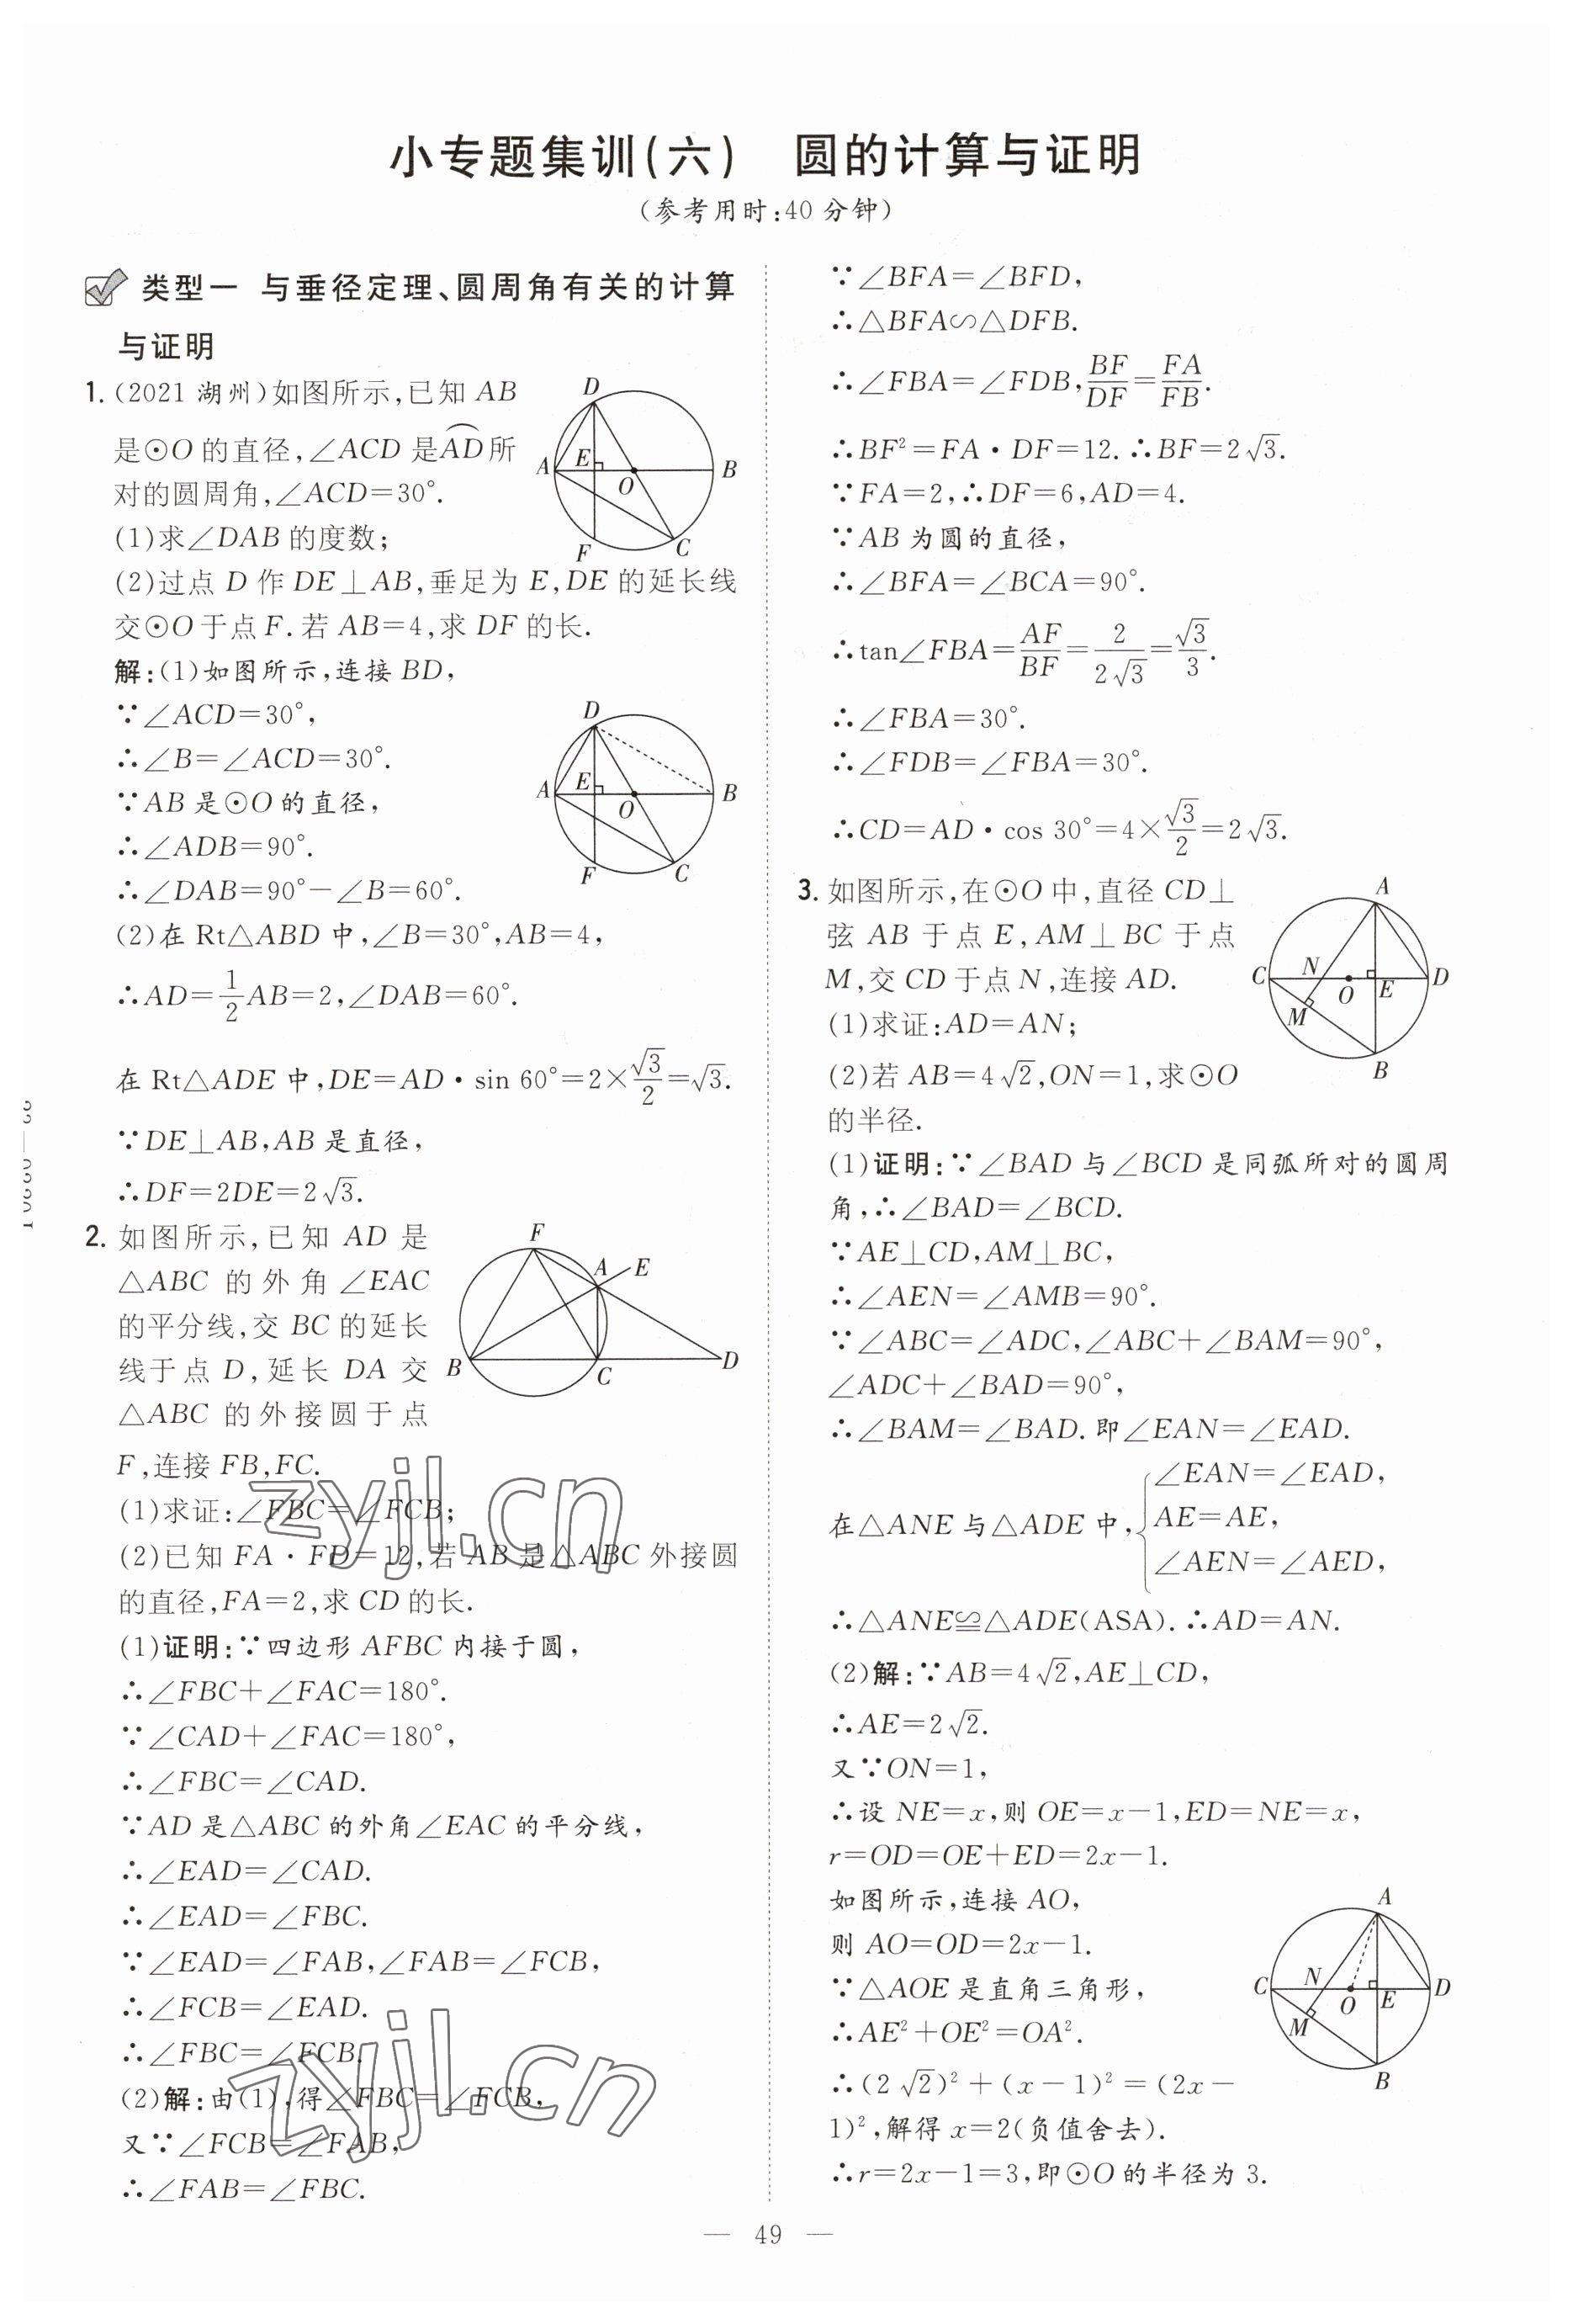 小专题集训(六) 圆的计算与证明
(参考用时:40分钟)
类型一 与垂径定理、圆周角有关的计算
与证明
1.(2021湖州)如图所示,已知AB
是⊙O的直径,∠ACD是AD⌒所
对的圆周角,∠ACD=30°.
(1)求∠DAB的度数;
(2)过点D作DE⊥AB,垂足为E,DE的延长线
交⊙O于点F.若AB=4,求DF的长.
D
A
E
O
B
F
C
解:(1)如图所示,连接BD,
∵∠ACD=30°,
∴∠B=∠ACD=30°.
∵AB是⊙O的直径,
∴∠ADB=90°.
∴∠DAB=90°-∠B=60°.
D
A
E
O
B
F
C
(2)在Rt△ABD中,∠B=30°,AB=4,
∴AD=1/2AB=2,∠DAB=60°.
在Rt△ADE中,DE=AD·sin 60°=2×√3/2=√3.
∵DE⊥AB,AB是直径,
∴DF=2DE=2√3.
2.如图所示,已知AD是
△ABC的外角∠EAC
的平分线,交BC的延长
线于点D,延长DA交
△ABC的外接圆于点
F,连接FB,FC.
F
A
E
B
C
D
(1)求证:∠FBC=∠FCB;
(2)已知FA·FD=12,若AB是△ABC外接圆
的直径,FA=2,求CD的长.
(1)证明:∵四边形AFBC内接于圆,
∴∠FBC+∠FAC=180°.
∵∠CAD+∠FAC=180°,
∴∠FBC=∠CAD.
∵AD是△ABC的外角∠EAC的平分线,
∴∠EAD=∠CAD.
∴∠EAD=∠FBC.
∵∠EAD=∠FAB,∠FAB=∠FCB,
∴∠FCB=∠EAD.
∴∠FBC=∠FCB.
(2)解:由(1),得∠FBC=∠FCB,
又∵∠FCB=∠FAB,
∴∠FAB=∠FBC.
∵∠BFA=∠BFD,
∴△BFA∽△DFB.
∴∠FBA=∠FDB,BF/DF=FA/FB.
∴BF²=FA·DF=12.∴BF=2√3.
∵FA=2,∴DF=6,AD=4.
∵AB为圆的直径,
∴∠BFA=∠BCA=90°.
∴tan∠FBA=AF/BF=2/2√3=√3/3.
∴∠FBA=30°.
∴∠FDB=∠FBA=30°.
∴CD=AD·cos 30°=4×√3/2=2√3.
3.如图所示,在⊙O中,直径CD⊥
弦AB于点E,AM⊥BC于点
M,交CD于点N,连接AD.
(1)求证:AD=AN;
(2)若AB=4√2,ON=1,求⊙O
的半径.
A
C
N
O
E
D
M
B
(1)证明:∵∠BAD与∠BCD是同弧所对的圆周
角,∴∠BAD=∠BCD.
∵AE⊥CD,AM⊥BC,
∴∠AEN=∠AMB=90°.
∵∠ABC=∠ADC,∠ABC+∠BAM=90°,
∠ADC+∠BAD=90°,
∴∠BAM=∠BAD.即∠EAN=∠EAD.
在△ANE与△ADE中,{∠EAN=∠EAD,
AE=AE,
∠AEN=∠AED,
∴△ANE≌△ADE(ASA).∴AD=AN.
(2)解:∵AB=4√2,AE⊥CD,
∴AE=2√2.
又∵ON=1,
∴设NE=x,则OE=x-1,ED=NE=x,
r=OD=OE+ED=2x-1.
如图所示,连接AO,
则AO=OD=2x-1.
∵△AOE是直角三角形,
∴AE²+OE²=OA².
∴(2√2)²+(x-1)²=(2x-
1)²,解得x=2(负值舍去).
∴r=2x-1=3,即⊙O的半径为3.
A
C
N
O
E
D
M
B
zyjl.cn
zyjl.cn
— 49 —